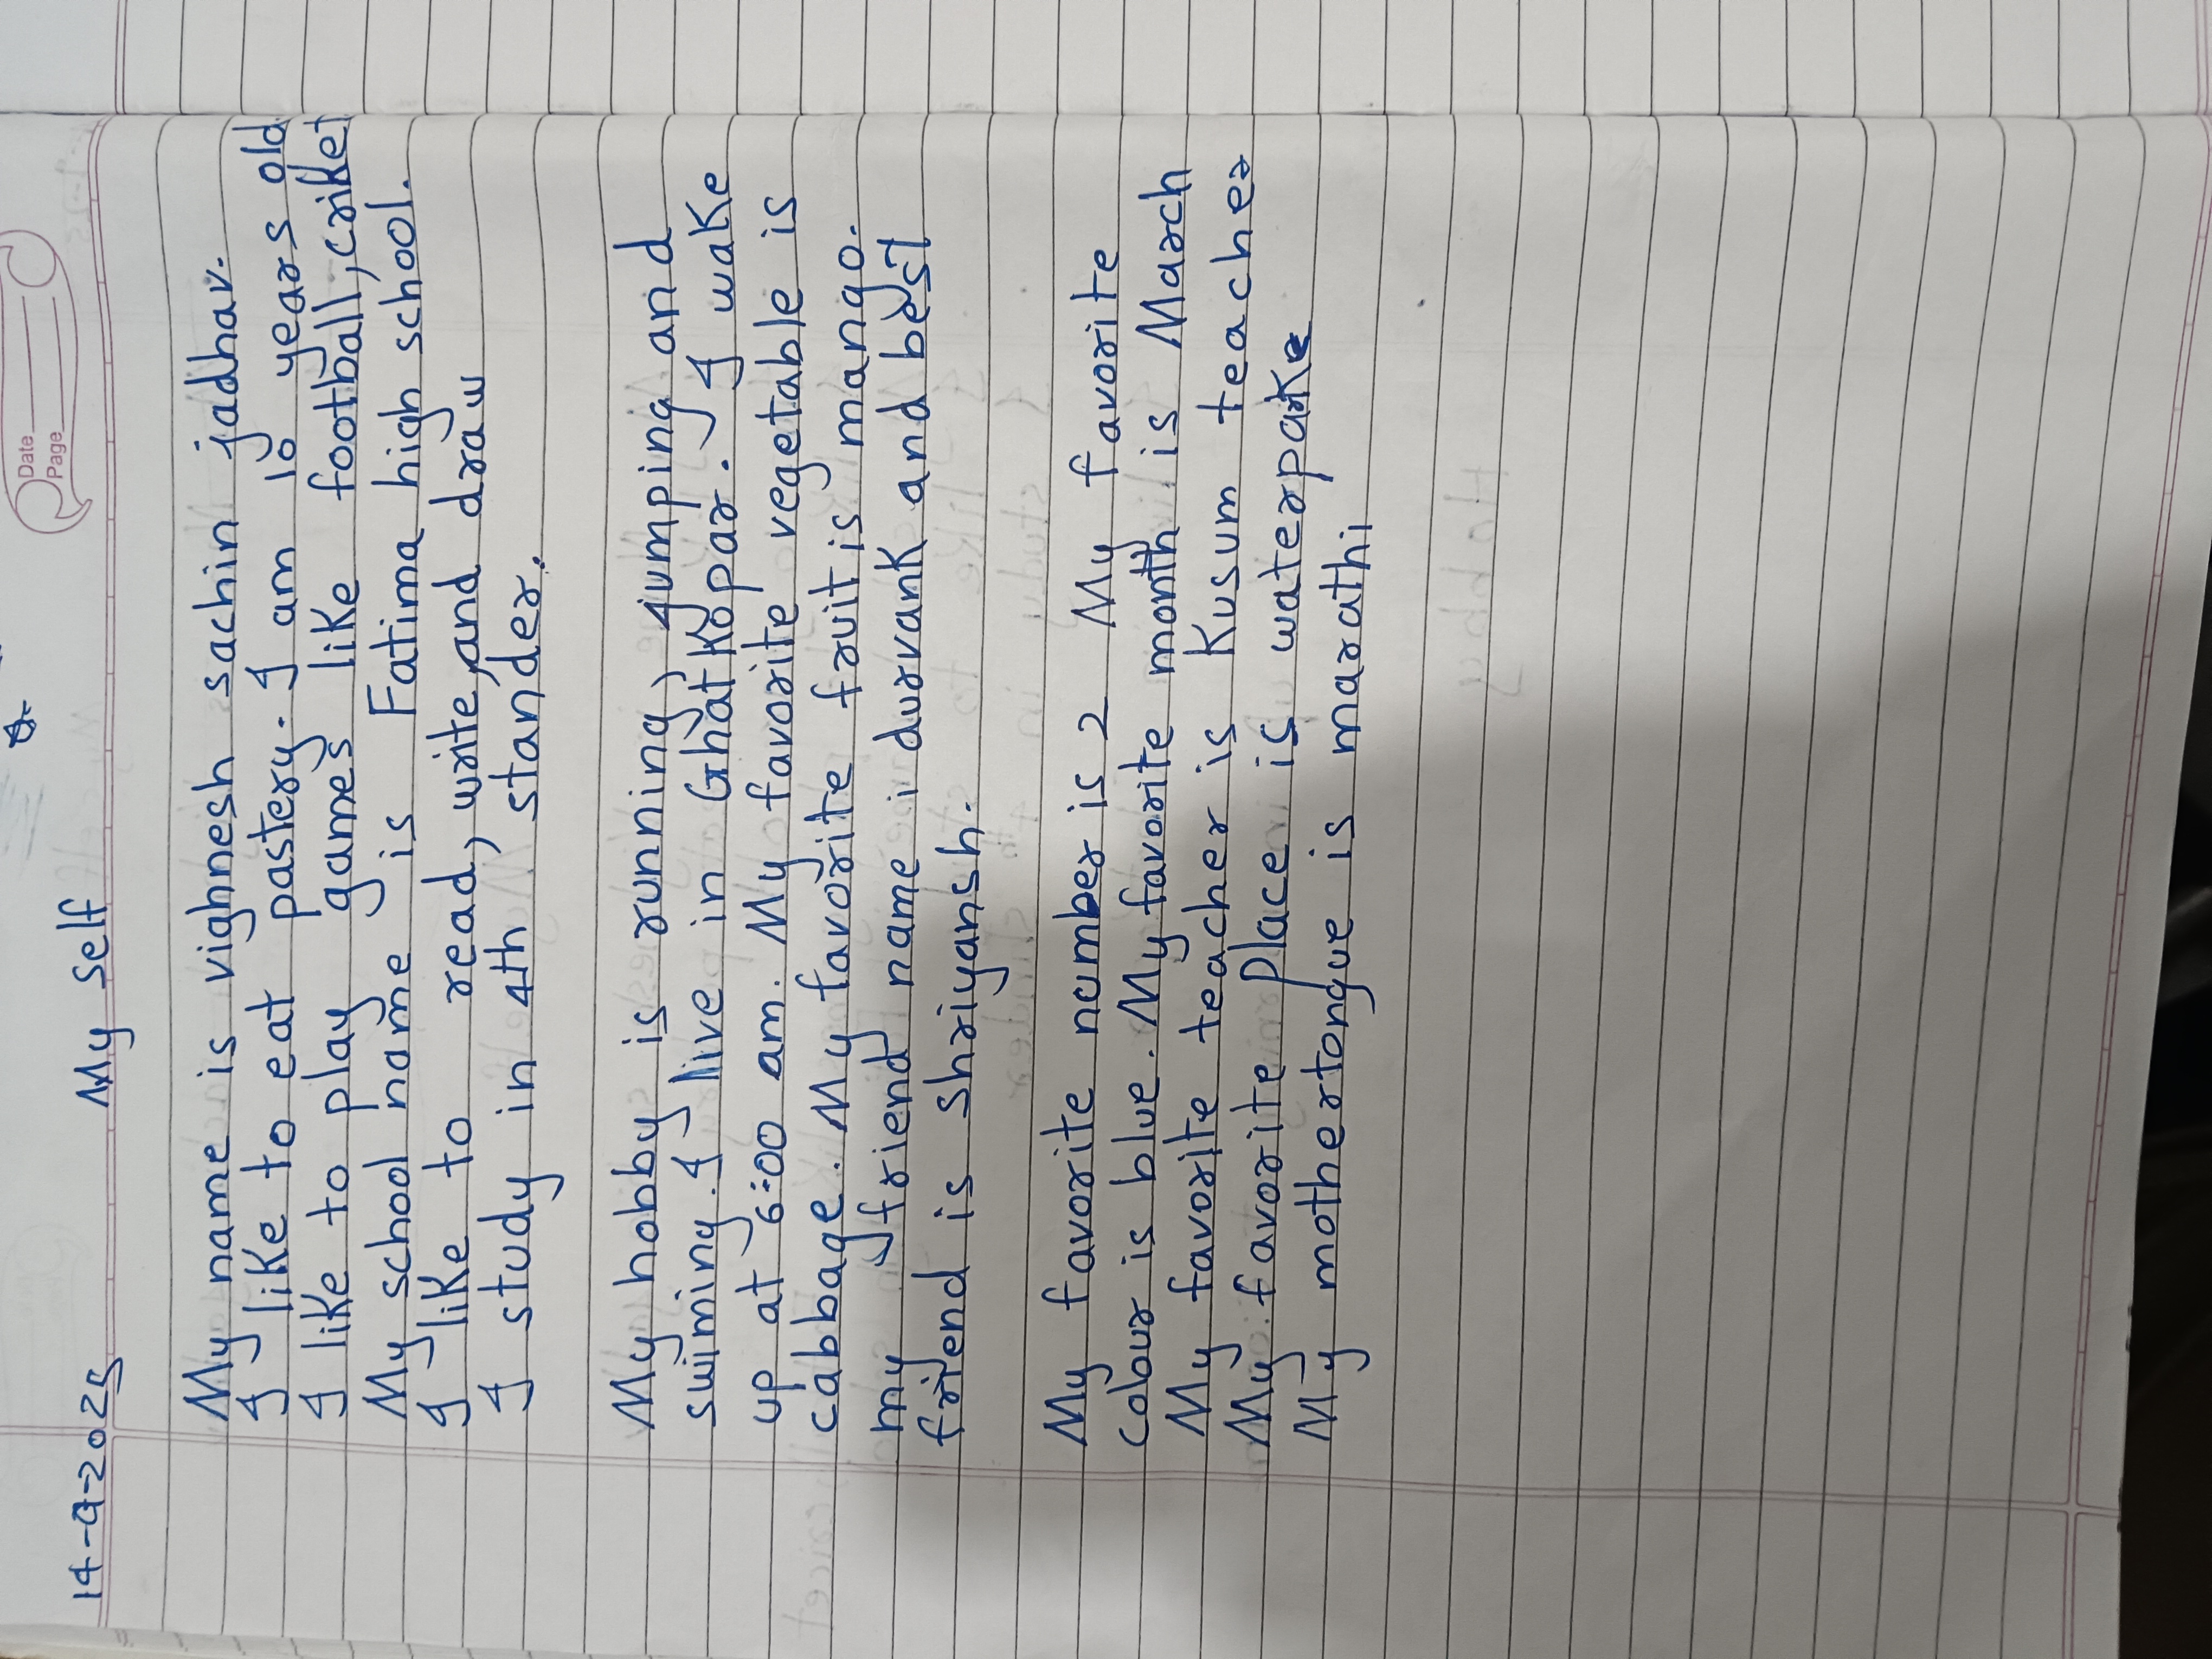 Date
Page
14-9-2025
My self
My name is vighnesh sachin jadhav.
I like to eat pastery. I am 10 years old
I like to play games like football, criket
My school name is Fatima high school.
I like to read, write, and draw
I study in 4th stander.
My hobby is running, jumping and
swiming. I live in Ghatkopar. I wake
up at 6:00 am. My favorite vegetable is
cabbage. My favorite fruit is mango.
my friend name i durvank and best
friend is shriyansh.
My favorite number is 2 My favorite
colour is blue. My favorite month is March
My favorite teacher is Kusum teacher
My favorite place is waterparke
My mothertongue is marathi